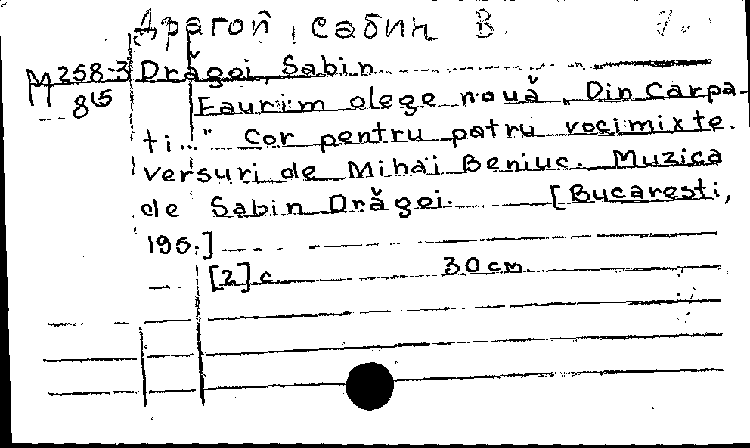 Драгой, Сабин В.
М 258-3 Drăgoi, Sabin
815
Faurim olege nouă „Din Carpa-
ti..." Cor pentru patru voci mixte.
Versuri de Mihai Beniuc. Muzica
de Sabin Drăgoi. [Bucaresti,
195.]
[2] c. 30 cm.